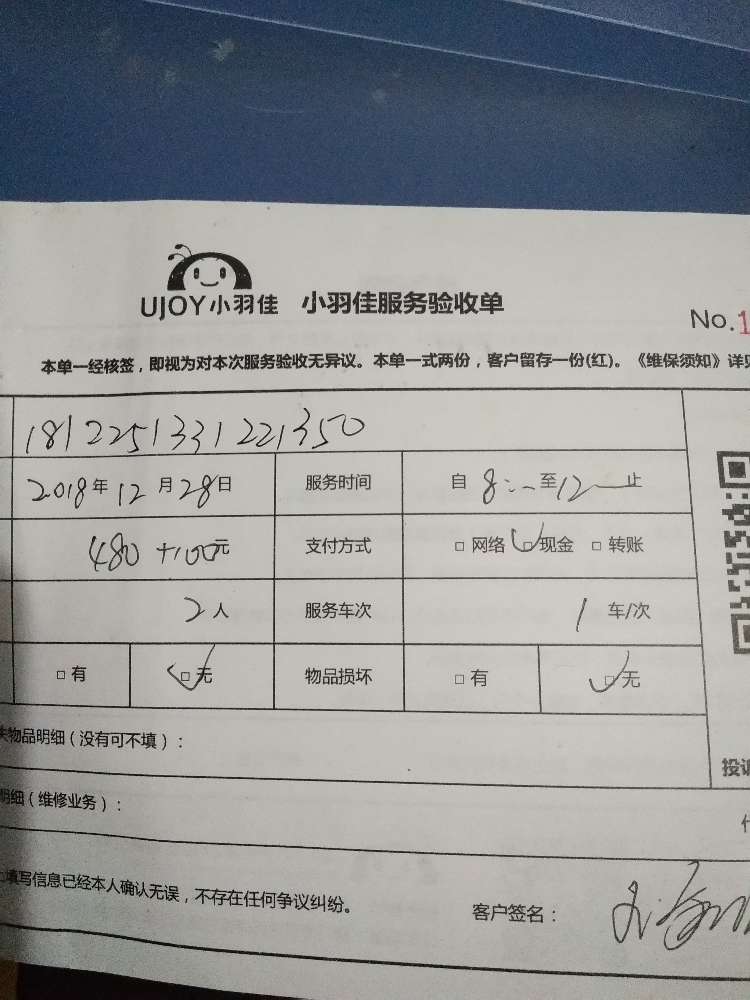 UJOY小羽佳 小羽佳服务验收单
No.1
本单一经核签，即视为对本次服务验收无异议。本单一式两份，客户留存一份(红)。《维保须知》详见
1812251331221350
2018年12月28日 服务时间 自8:一至12一止
480+100元 支付方式 □网络 □现金 □转账
2人 服务车次 1车/次
□有 □无 物品损坏 □有 □无
失物品明细（没有可不填）：
投诉
明细（维修业务）：
上填写信息已经本人确认无误，不存在任何争议纠纷。
客户签名：